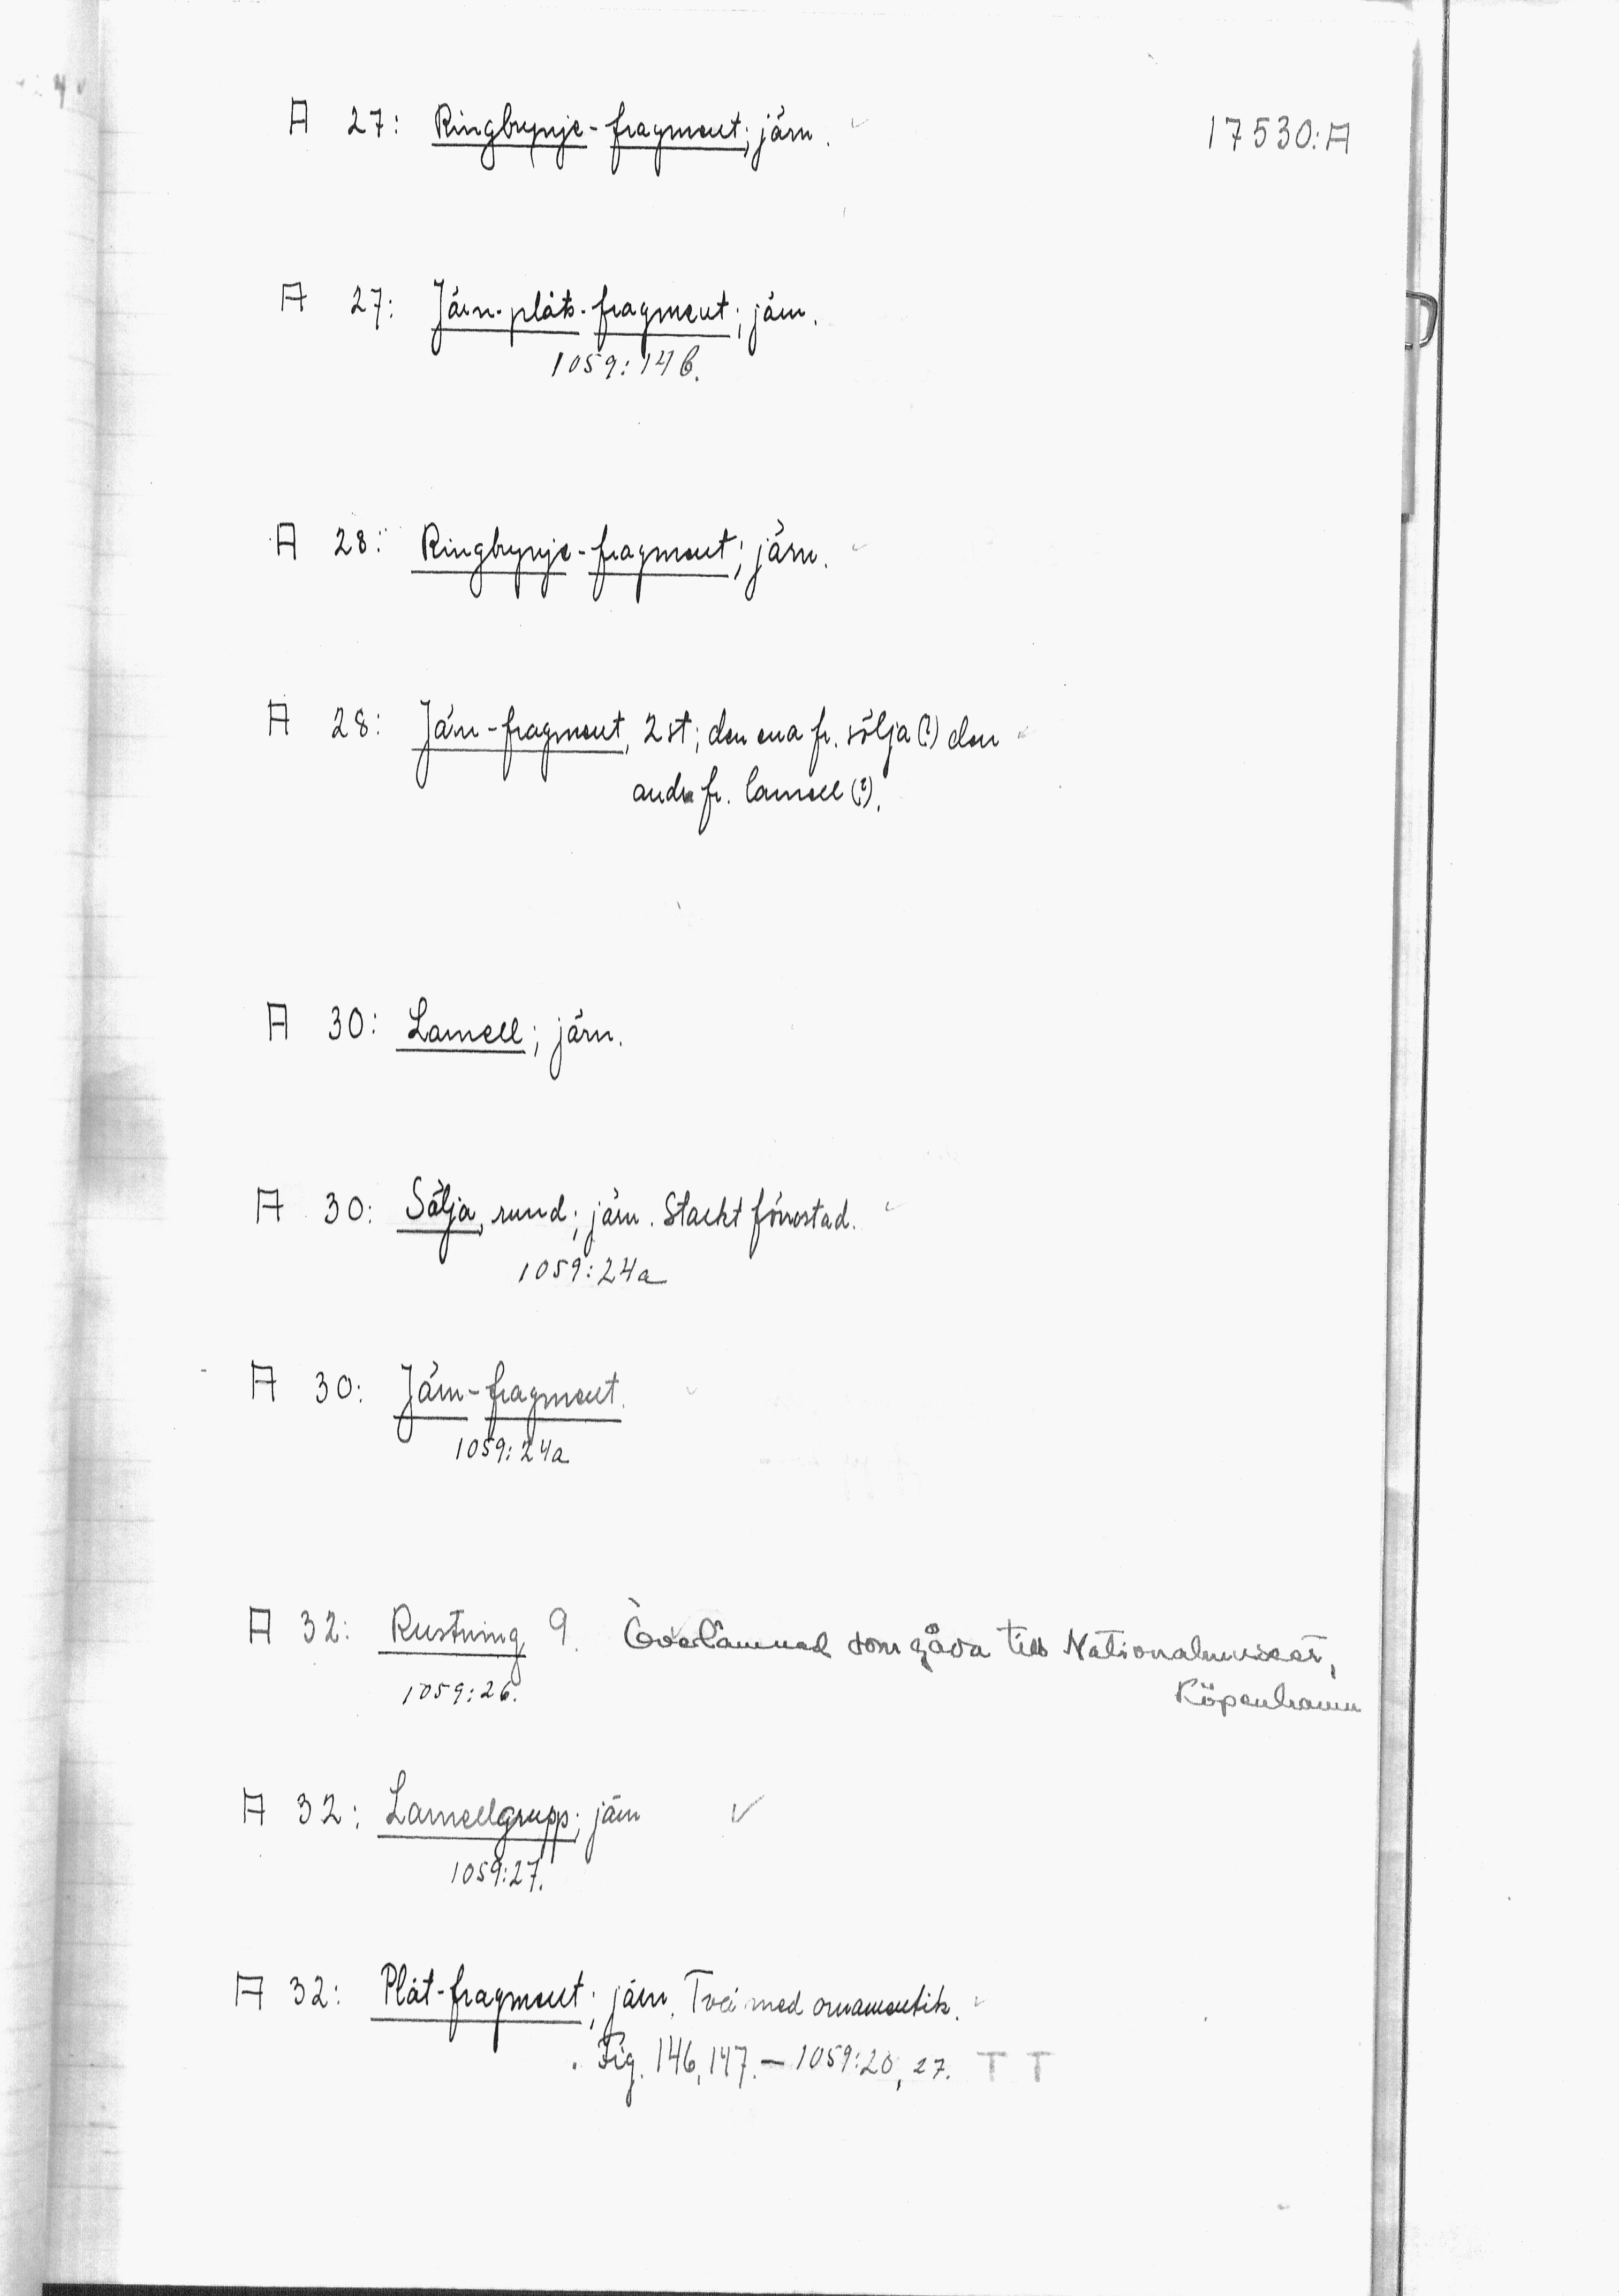 17530:A
A 27: Ringbrynje-fragment; järn.
A 27: Järn-plåts-fragment; järn.
1059:14b.
A 28: Ringbrynje-fragment; järn.
A 28: Järn-fragment, 2 st; den ena fr. sölja (?) den
andra fr. lamell (?).
A 30: Lamell; järn.
A 30: Sölja, rund; järn. Starkt förrostad.
1059:24a
A 30: Järn-fragment.
1059:24a
A 32: Rustning 9. Överlämnad som gåva till Nationalmuseet,
Köpenhamn
1059:26.
A 32: Lamellgrupp; järn
1059:27.
A 32: Plåt-fragment; järn. Två med ornamentik.
Fig. 146, 147. — 1059:20, 27. T T